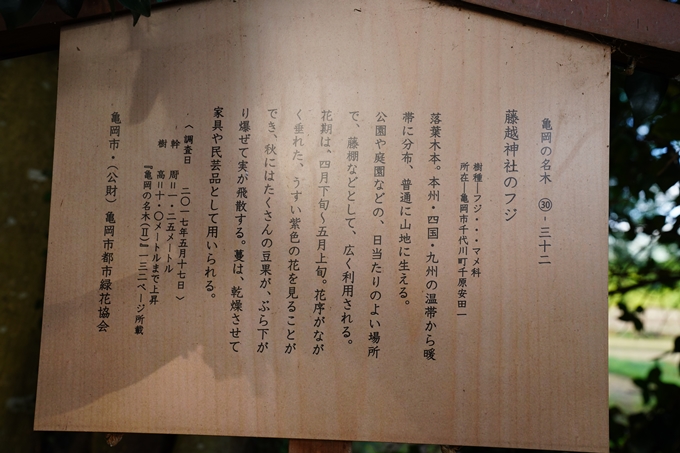 亀岡の名木 ㉚-三十二
藤越神社のフジ
樹種―フジ・・・マメ科
所在―亀岡市千代川町千原安田一
落葉木本。本州・四国・九州の温帯から暖
帯に分布、普通に山地に生える。
公園や庭園などの、日当たりのよい場所
で、藤棚などとして、広く利用される。
花期は、四月下旬～五月上旬。花序がなが
く垂れた、うすい紫色の花を見ることが
でき、秋にはたくさんの豆果が、ぶら下が
り爆ぜて実が飛散する。蔓は、乾燥させて
家具や民芸品として用いられる。
〈調査日 二〇一七年五月十七日〉
幹 周＝一・二五メートル
樹 高＝十・〇メートルまで上昇
『亀岡の名木(Ⅱ)』一三二ページ所載
亀岡市・(公財)亀岡市都市緑花協会